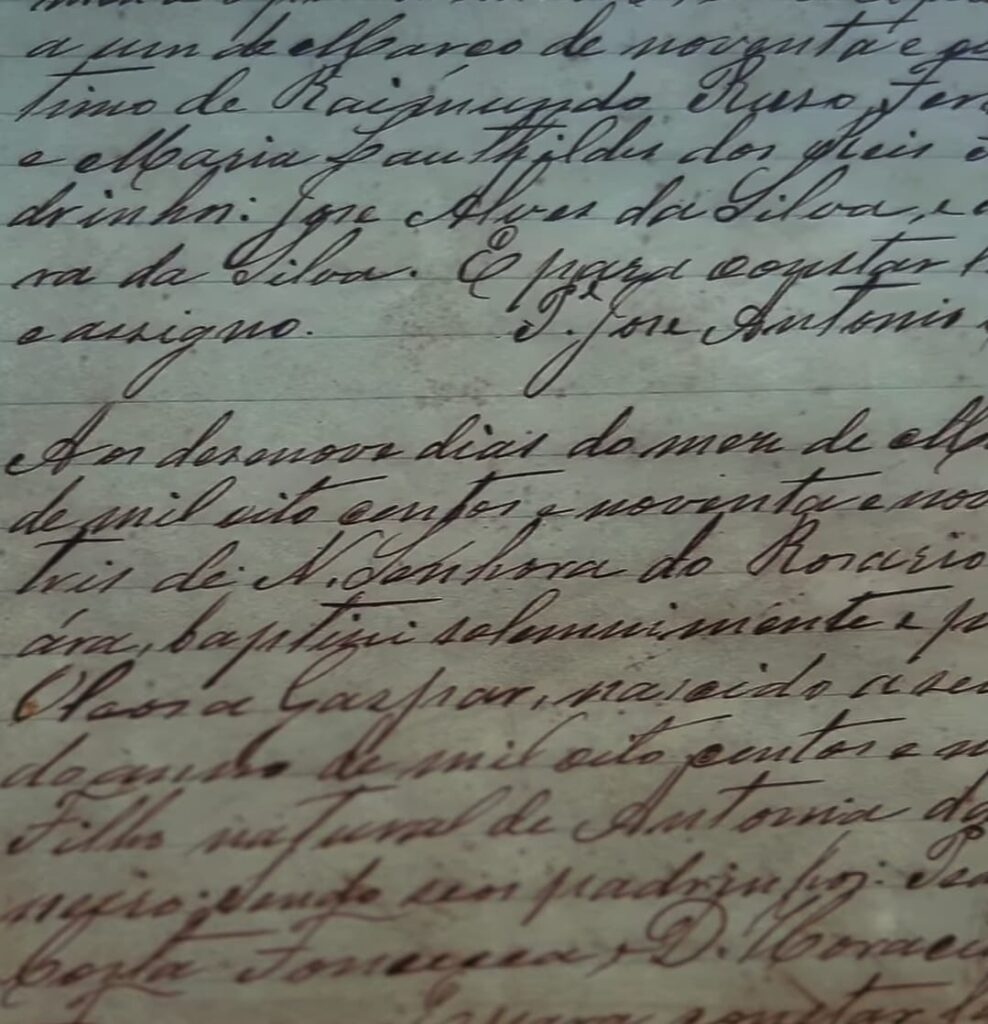 a um de Março de noventa e
timo de Raimundo Russo Fer
e Maria Gauthildes dos Reis e
drinhos: Jose Alves da Silva, e
ra da Silva. E para constar
e assigno. Pe. Jose Antonio
Aos desenove dias do mez de M
de mil oito centos e noventa e nov
triz de N. Senhora do Rosario
ára, baptizei solemnimente e p
a Gaspar, nascido a
do anno de mil oito centos e n
Filho natural de Antonia da
neiro; sendo seos padrinhos:
Costa Fonceca, e D. Horaci
E para constar